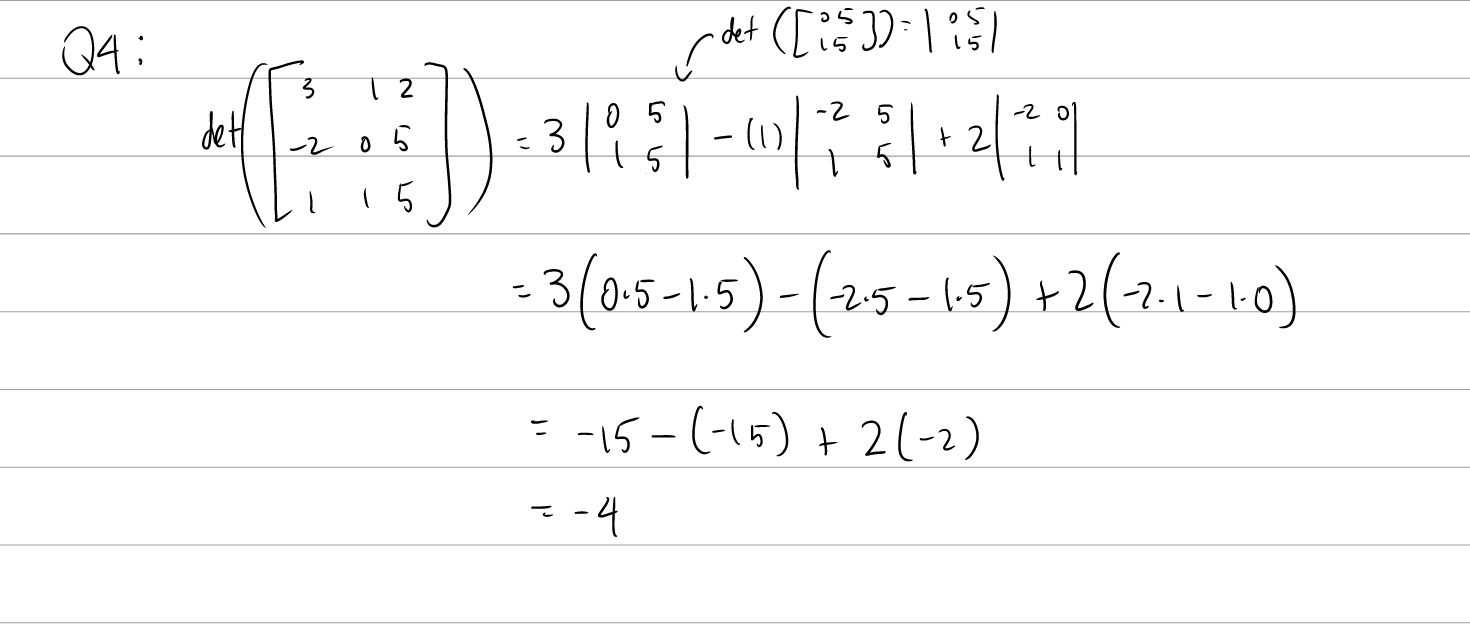 Q4:
det([0 5 1 5]) = |0 5 1 5|
det([3 1 2 -2 0 5 1 1 5]) = 3 |0 5 1 5| - (1) |-2 5 1 5| + 2 |-2 0 1 1|
= 3(0·5 - 1·5) - (-2·5 - 1·5) + 2(-2·1 - 1·0)
= -15 - (-15) + 2(-2)
= -4